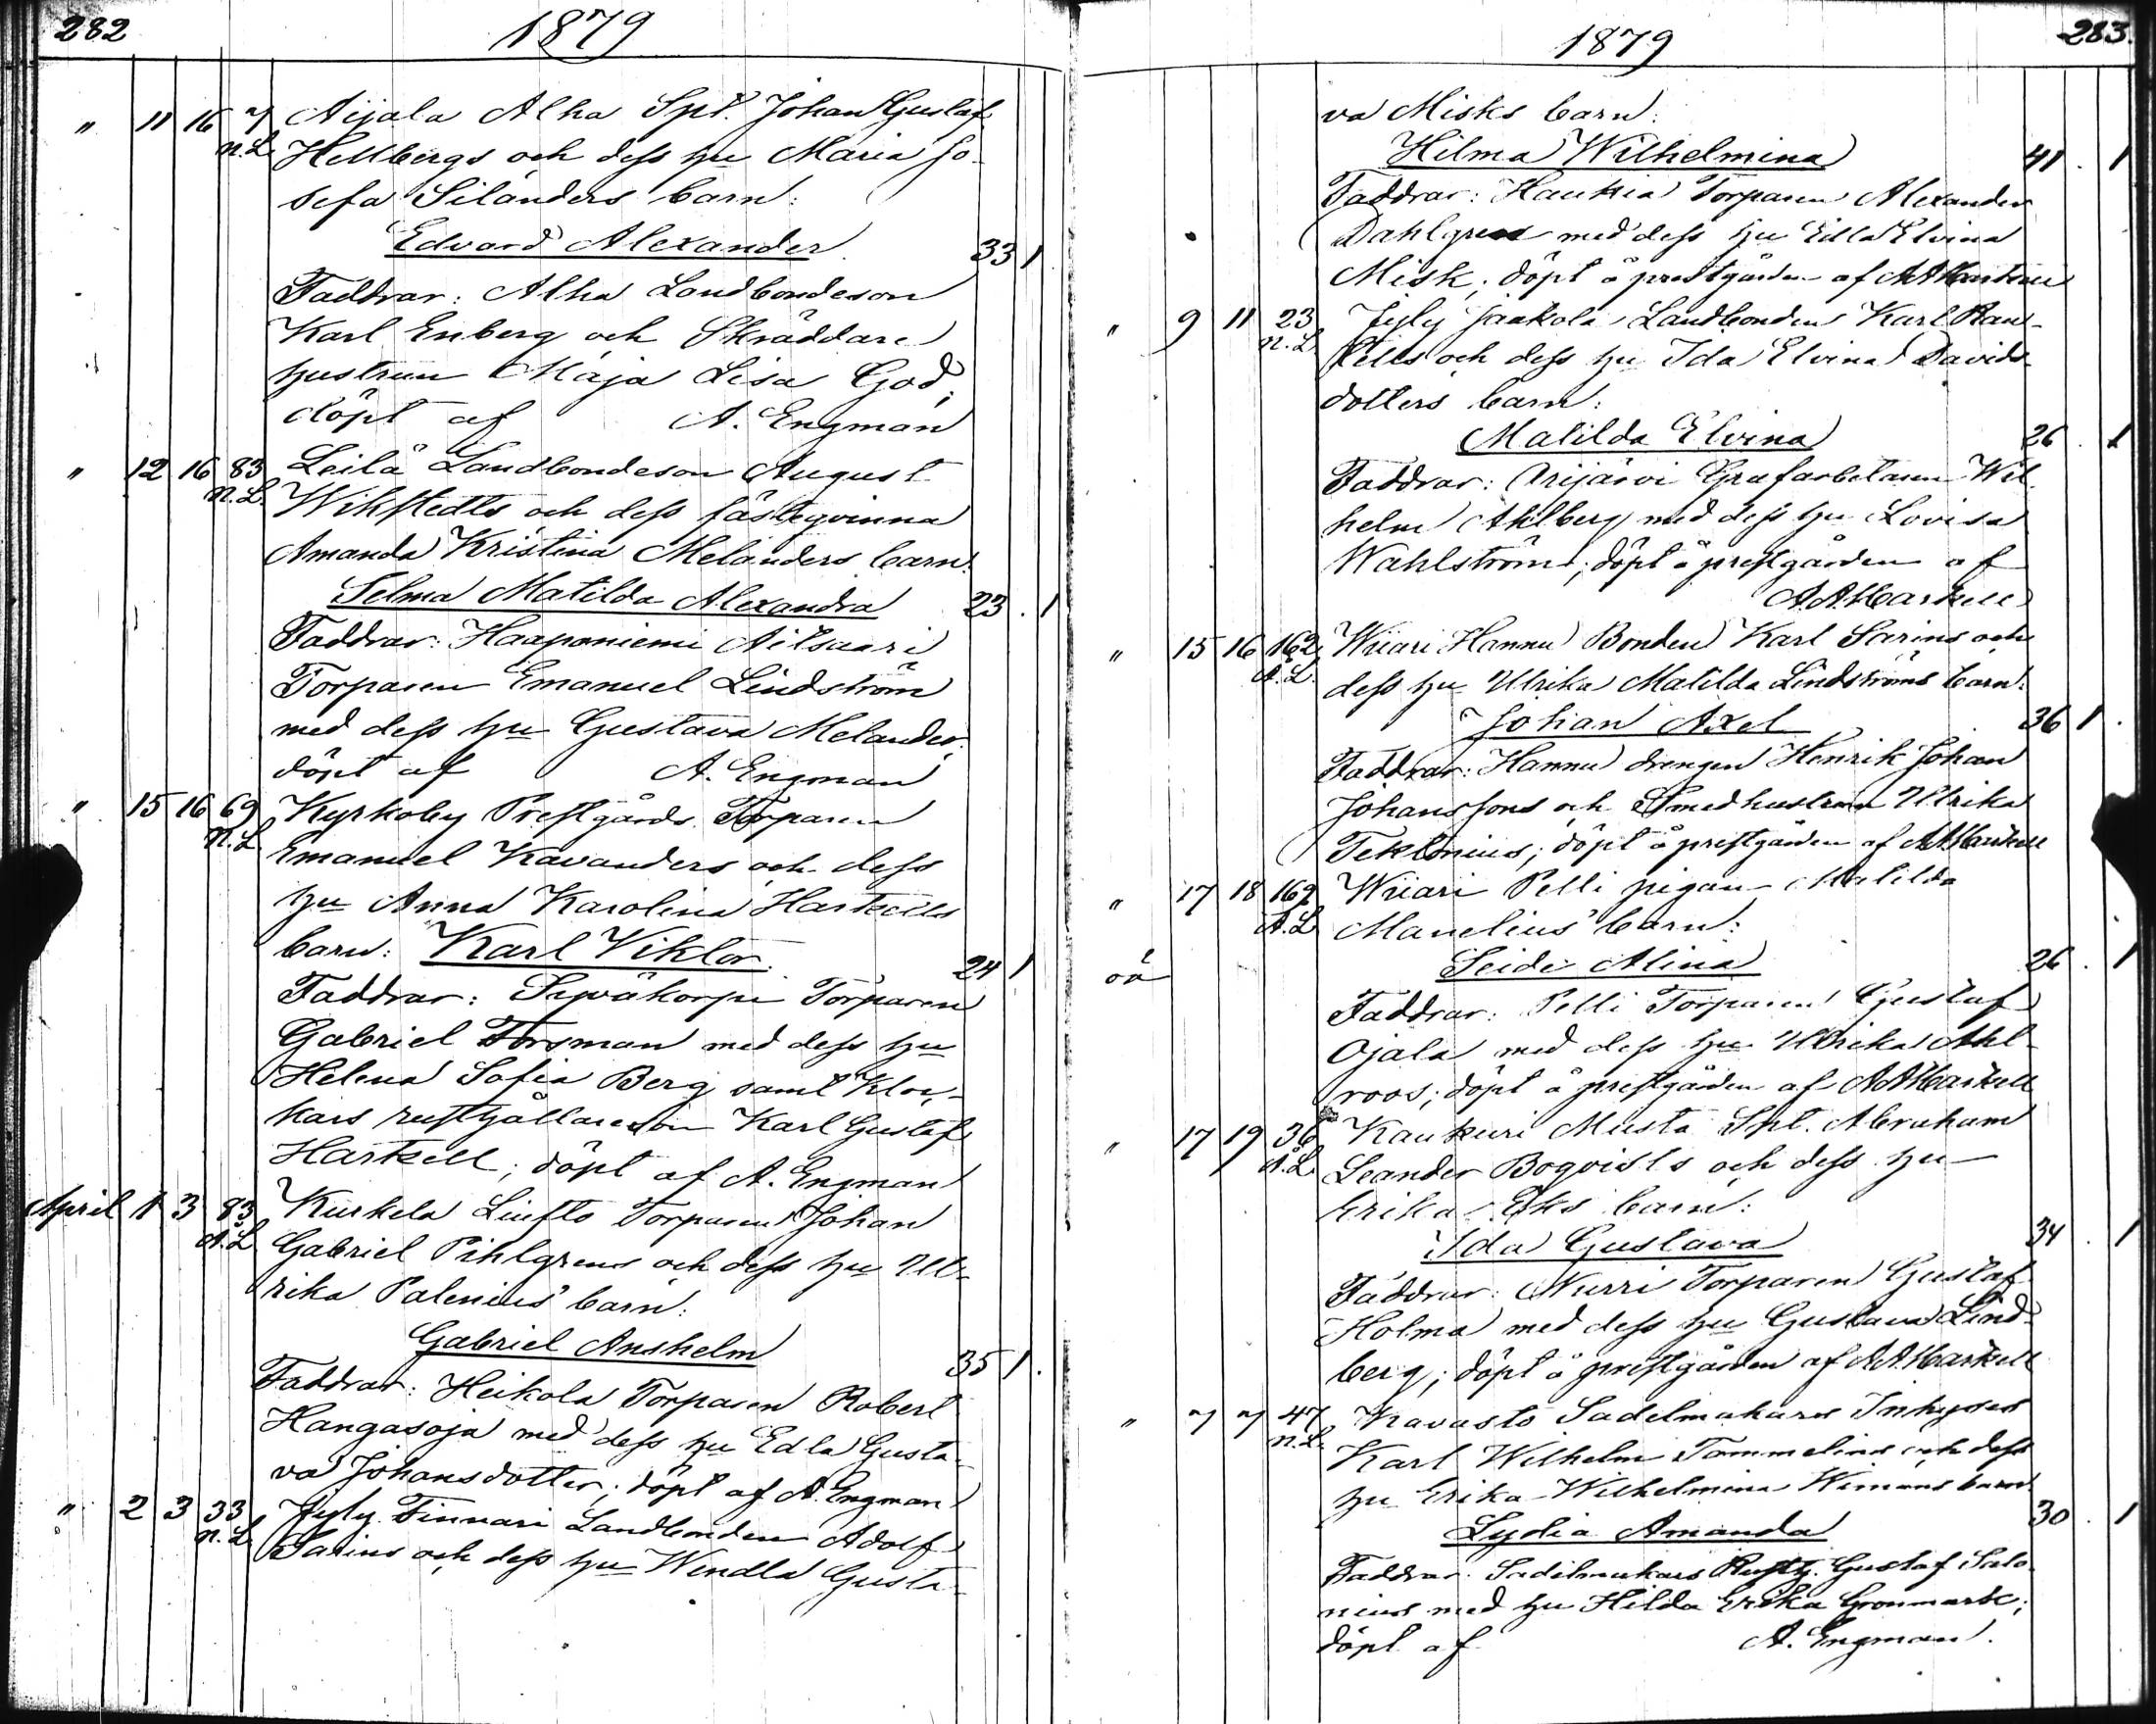 282
1879
" 11 16 7 Äijälä Alha Spt. Johan Gustaf
n.L. Hellbergs och dess hu Maria Jo-
sefa Silanders barn:
Edvard Alexander 33 1
Faddrar: Alha Landbondeson
Karl Enberg och Skräddare
hustrun Maja Lisa God;
döpt af A. Engman
" 12 16 83 Leilä Landbondeson August
n.L. Wikstedts och dess fästeqvinna
Amanda Kristina Melanders barn:
Selma Matilda Alexandra 23 . 1
Faddrar: Haaponiemi Aitsaari
Torparen Emanuel Lindström
med dess hu Gustava Melander;
döpt af A. Engman
" 15 16 69 Kyrkoby Prestgårds Torparen
n.L Emanuel Kavanders och dess
hu Anna Karolina Hartzells
barn: Karl Viktor. 24 1
Faddrar: Torparen
Gabriel Forsman med dess hu
Helena Sofia Berg samt Kloc-
kars rusthållareson Karl Gustaf
Hartzell; döpt af A. Engman
April 1 3 83 Kurkela Liufto Torparen Johan
A.L Gabriel Pihlgrens och dess hu Ul-
rika Palenius' barn:
Gabriel Anshelm 35 1 .
Faddrar: Heikola Torparen Robert
Hangasoja med dess hu Edla Gusta-
va Johansdotter; döpt af A. Engman
" 2 3 33 Jyly Finnari Landbonden Adolf
n.L Sarins och dess hu Wendla Gusta-
1879
283.
va Misks barn:
Hilma Wilhelmina 41 . 1
Faddrar: Haukia Torparen Alexander
Dahlgren med dess hu Edla Elvina
Misk; döpt å prestgården af
" 9 11 23 Jyly Jaakola Landbonden Karl
n.L. och dess hu Ida Elvina Davids-
dotters barn:
Matilda Elvina 26 . 1
Faddrar: Grufarbetaren Wil-
helm Ahlberg med dess hu Lovisa
Wahlström; döpt å prestgården af
" 15 16 162 Wiiari Hannu Bonden Karl Sarins och
A.L. dess hu Ulrika Matilda Lindströms barn:
Johan Axel 36 1 .
Faddrar: Hannu drengen Henrik Johan
Johanssons och Smedhustrun Ulrika
Tektonius; döpt å prestgården af
" 17 18 169 Wiiari Pelli pigan Matilda
A.L Manelius' barn:
oä Seidi Alina 26 . 1
Faddrar: Pelli Torparen Gustaf
Ojala med dess hu Ulrika Ahl-
roos; döpt å prestgården af
" 17 19 36 Kaukuri Musta Spt. Abraham
A.L Leander Boqvists och dess hu
Erika Eks barn:
Ida Gustava 34 . 1
Faddrar: Nurri Torparen Gustaf
Holma med dess hu Gustava Lind-
berg; döpt å prestgården af
" 7 7 47 Kavasto Sadelmakares Inhyses
n.L. Karl Wilhelm Tammelins och dess
hu Erika Wilhelmina Wimans barn:
Lydia Amanda 30 . 1
Faddrar: Sadelmakars Rusth. Gustaf Salo-
nius med hu Hilda Erika Gronmark;
döpt af A. Engman.